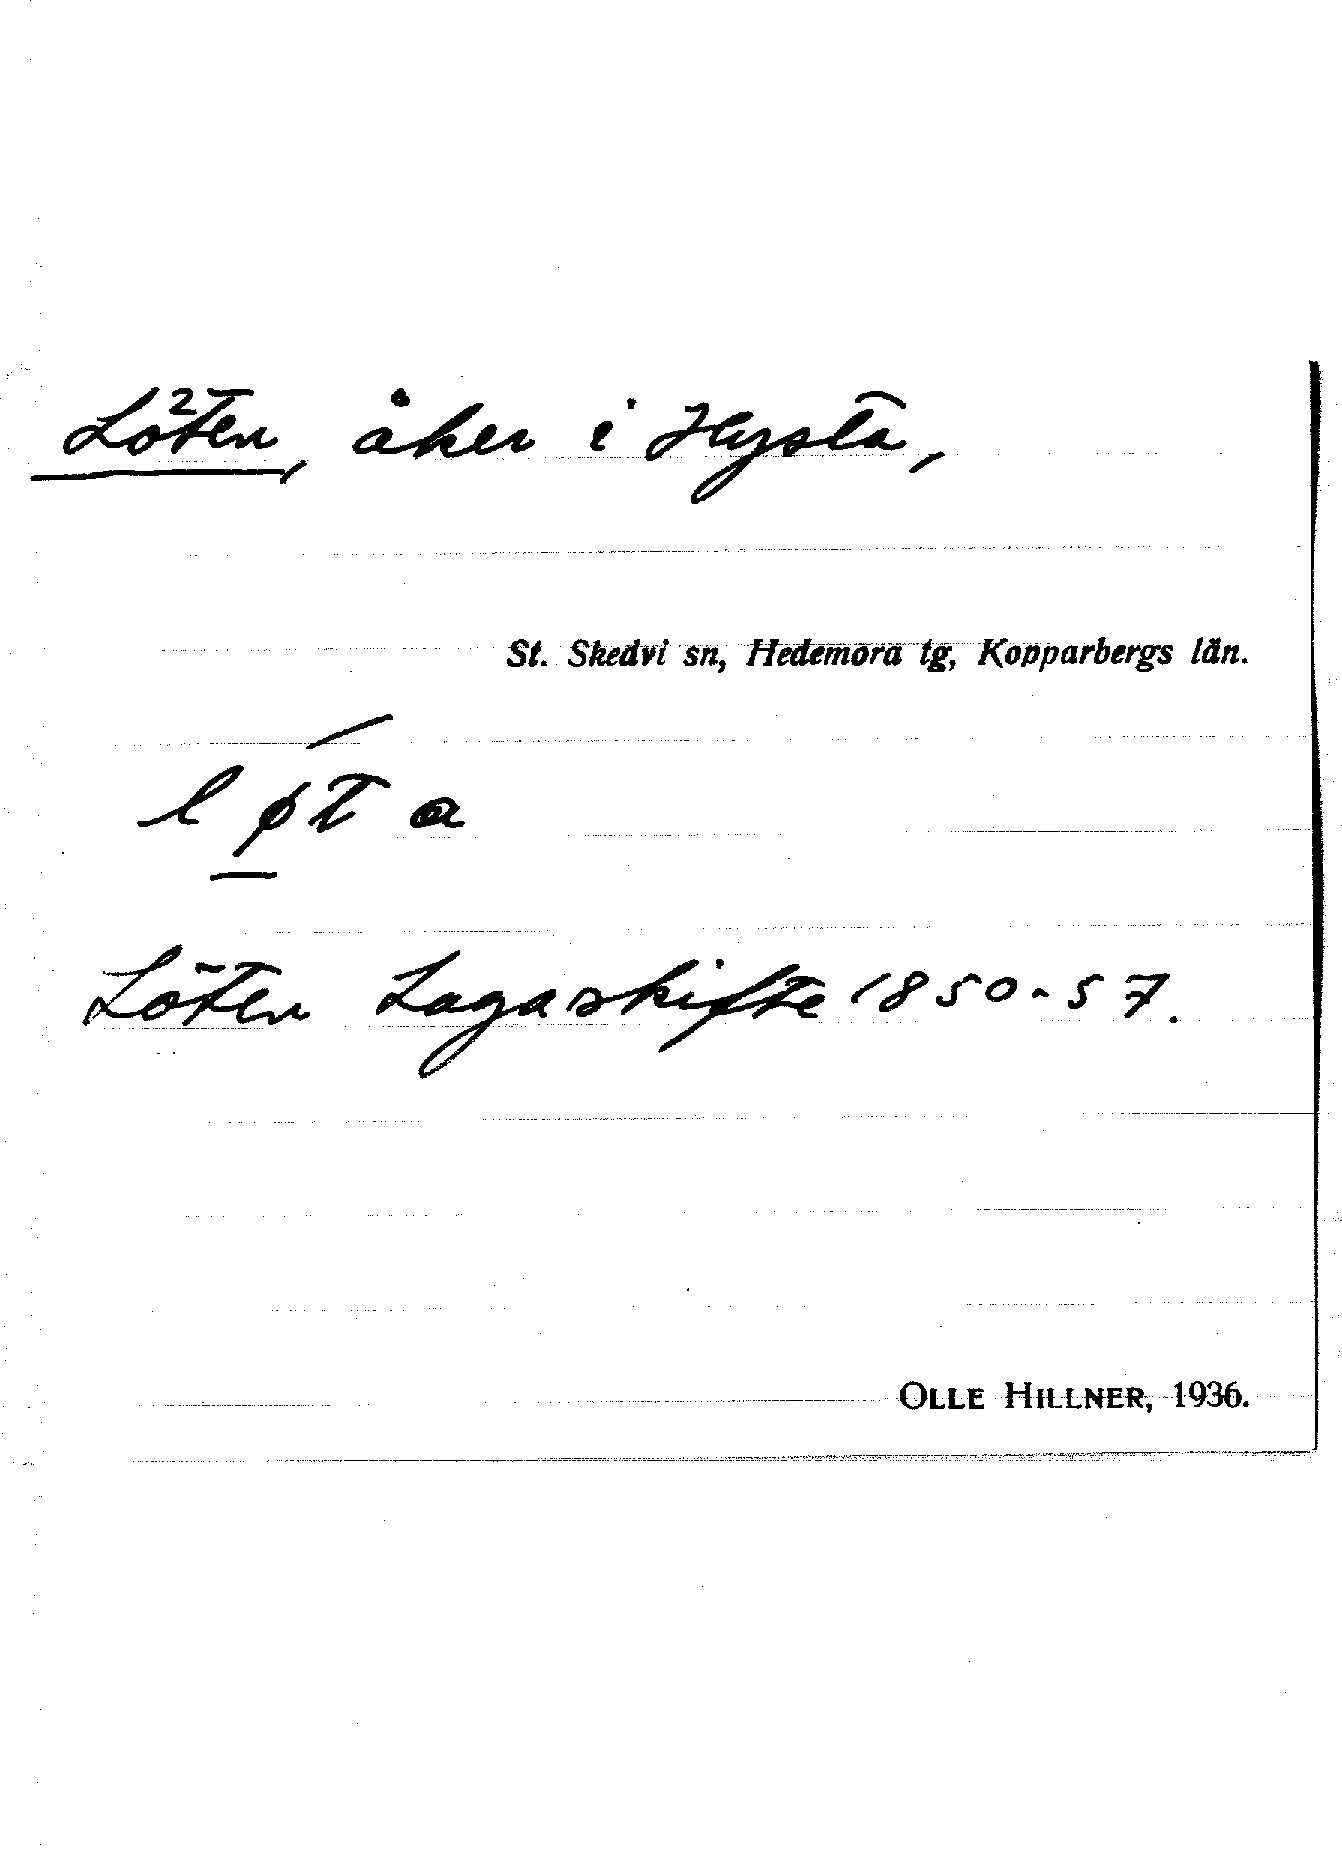 Löten, åker i Hysta,
St. Skedvi sn, Hedemora tg, Kopparbergs län.
l ø t a
Löten Lagaskifte 1850-57.
OLLE HILLNER, 1936.